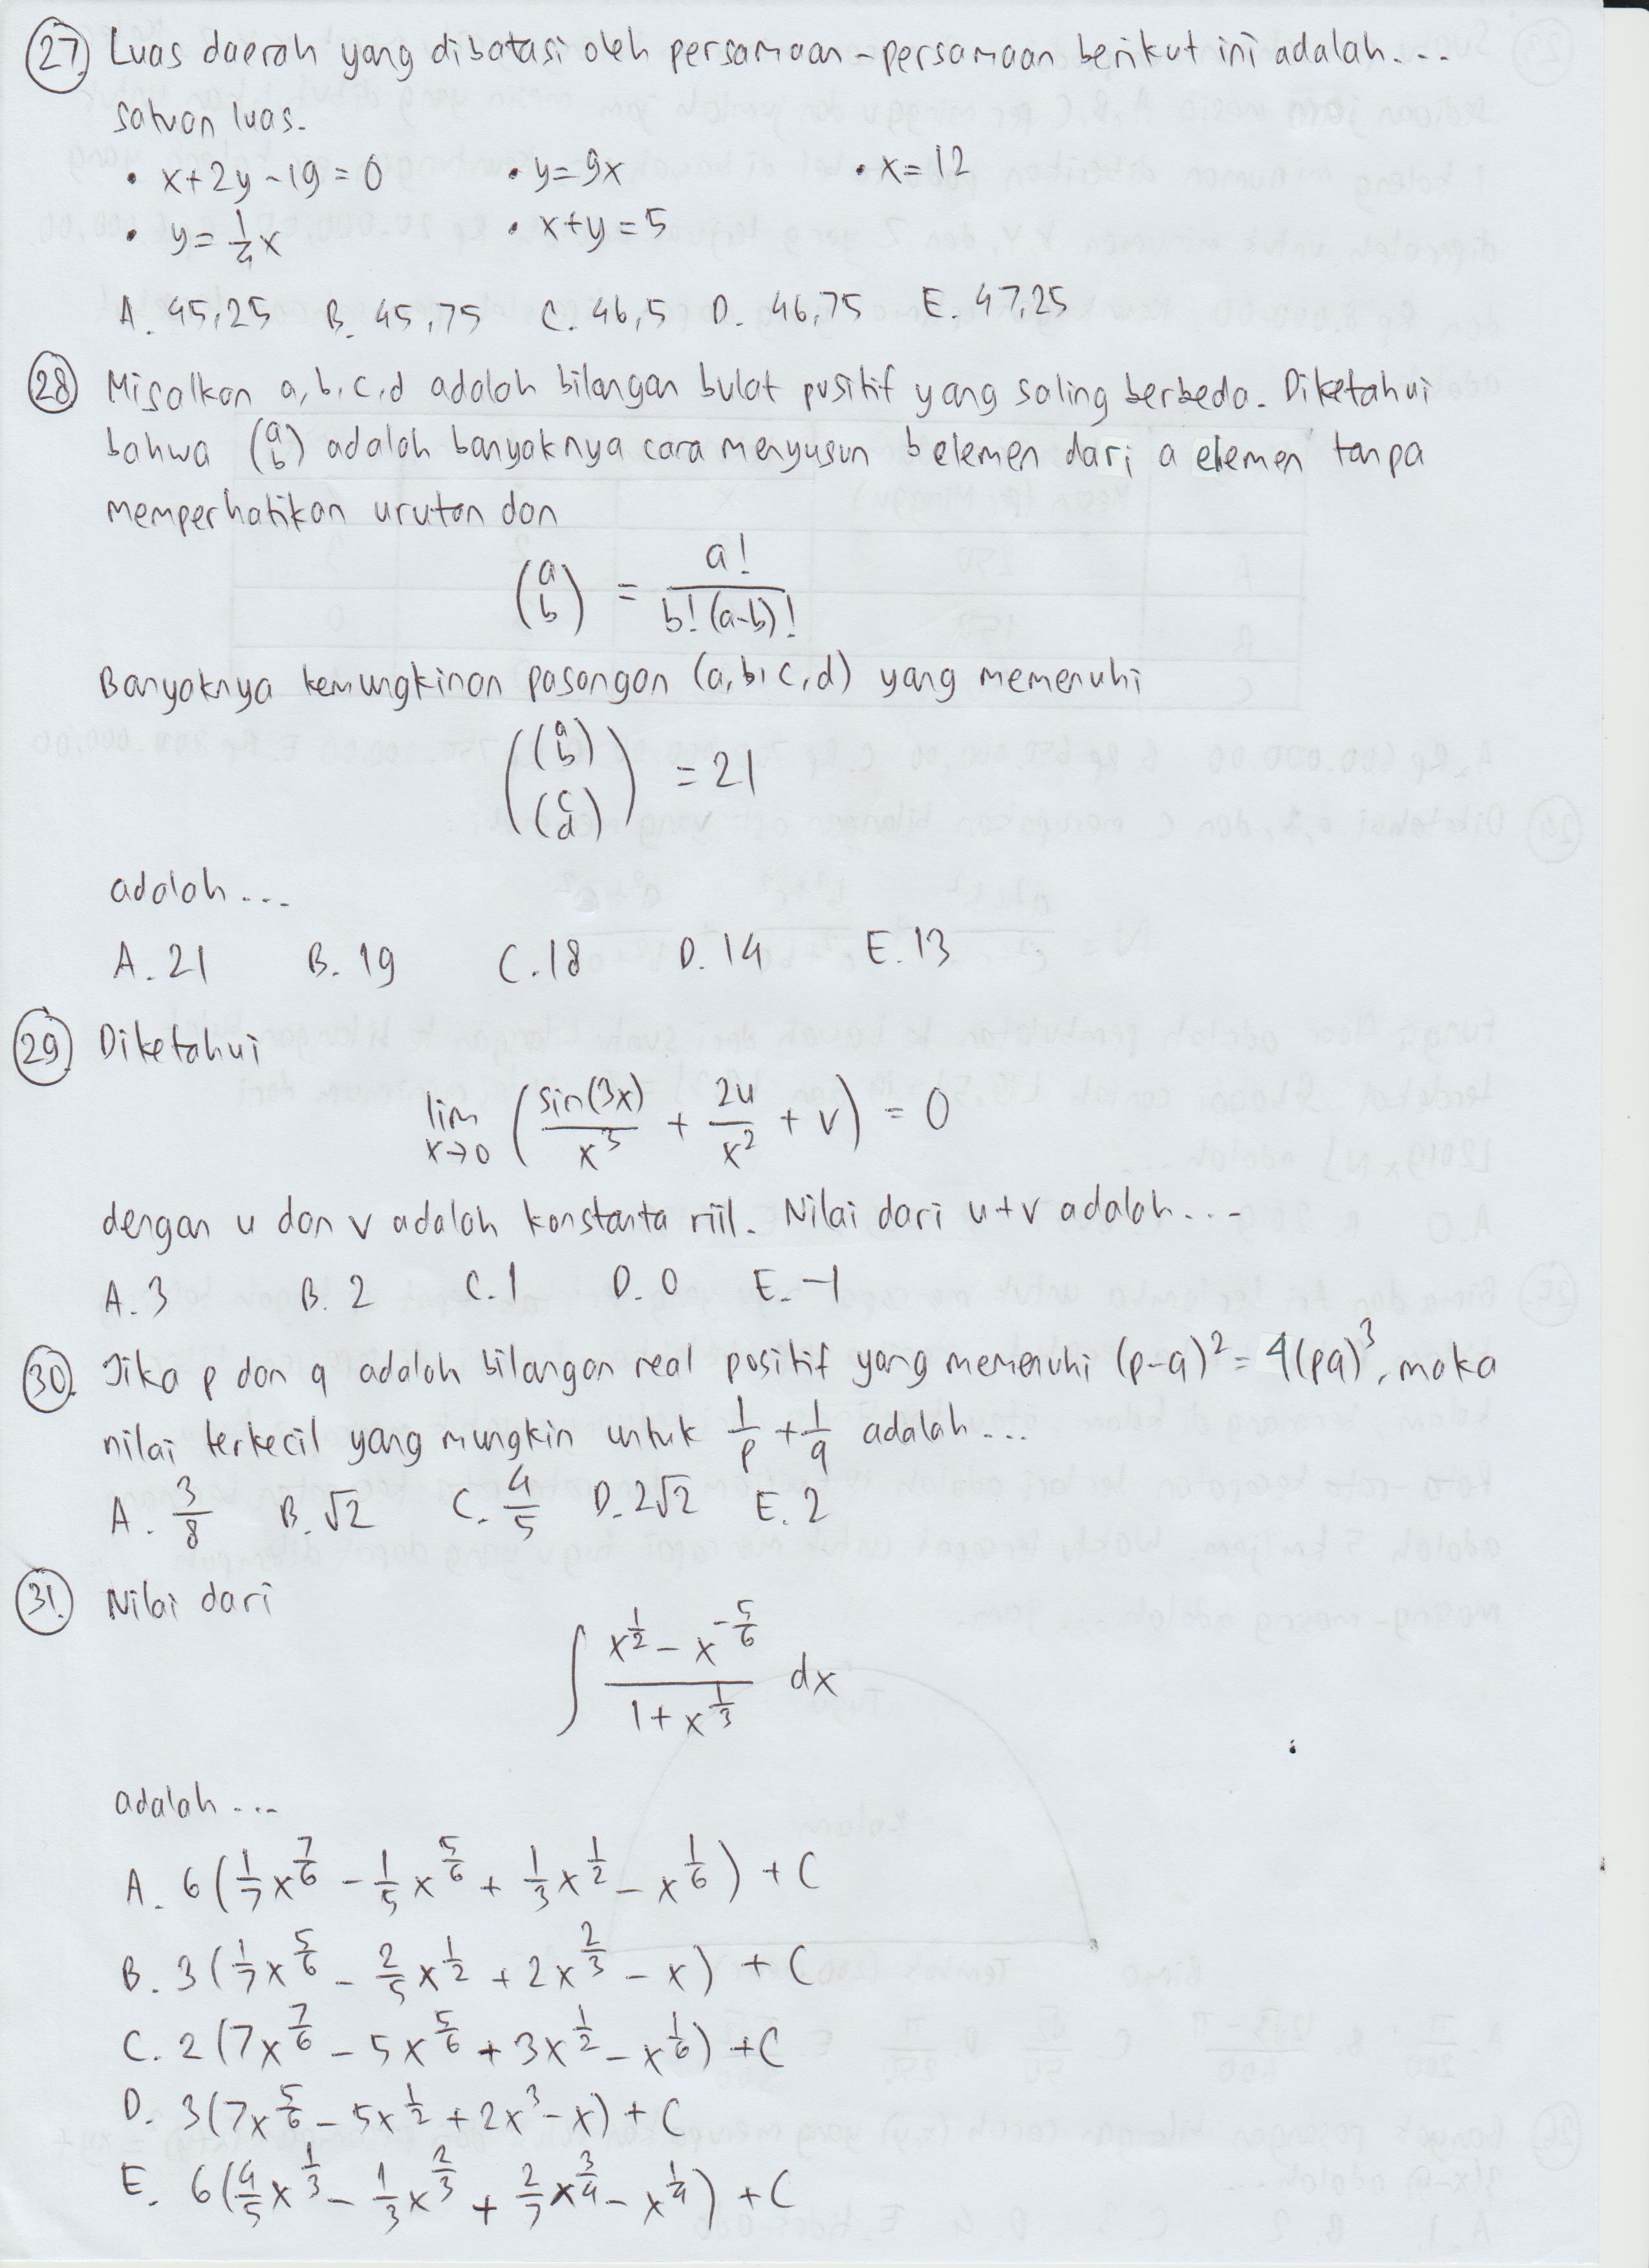 27 Luas daerah yang dibatasi oleh persamaan-persamaan berikut ini adalah...
satuan luas.
• x+2y-19=0 • y=9x • x=12
• y=1/4x • x+y=5
A. 45,25 B. 45,75 C. 46,5 D. 46,75 E. 47,25
28 Misalkan a, b, c, d adalah bilangan bulat positif yang saling berbeda. Diketahui
bahwa (a b) adalah banyaknya cara menyusun b elemen dari a elemen tanpa
memperhatikan urutan dan
(a b) = a! / b!(a-b)!
Banyaknya kemungkinan pasangan (a,b,c,d) yang memenuhi
((a b) (c d)) = 21
adalah...
A. 21 B. 19 C. 18 D. 14 E. 13
29. Diketahui
lim x→0 (sin(3x)/x³ + 2u/x² + v) = 0
dengan u dan v adalah konstanta riil. Nilai dari u+v adalah...
A. 3 B. 2 C. 1 D. 0 E. -1
30. Jika p dan q adalah bilangan real positif yang memenuhi (p-q)² = 4(pq)³, maka
nilai terkecil yang mungkin untuk 1/p + 1/q adalah...
A. 3/8 B. √2 C. 4/5 D. 2√2 E. 2
31. Nilai dari
∫ (x^(1/2) - x^(-5/6)) / (1 + x^(1/3)) dx
adalah...
A. 6(1/7x^(7/6) - 1/5x^(5/6) + 1/3x^(1/2) - x^(1/6)) + C
B. 3(1/7x^(5/6) - 2/5x^(1/2) + 2x^(2/3) - x) + C
C. 2(7x^(7/6) - 5x^(5/6) + 3x^(1/2) - x^(1/6)) + C
D. 3(7x^(5/6) - 5x^(1/2) + 2x³ - x) + C
E. 6(4/5x^(1/3) - 1/3x^(2/3) + 2/7x^(3/4) - x^(1/4)) + C